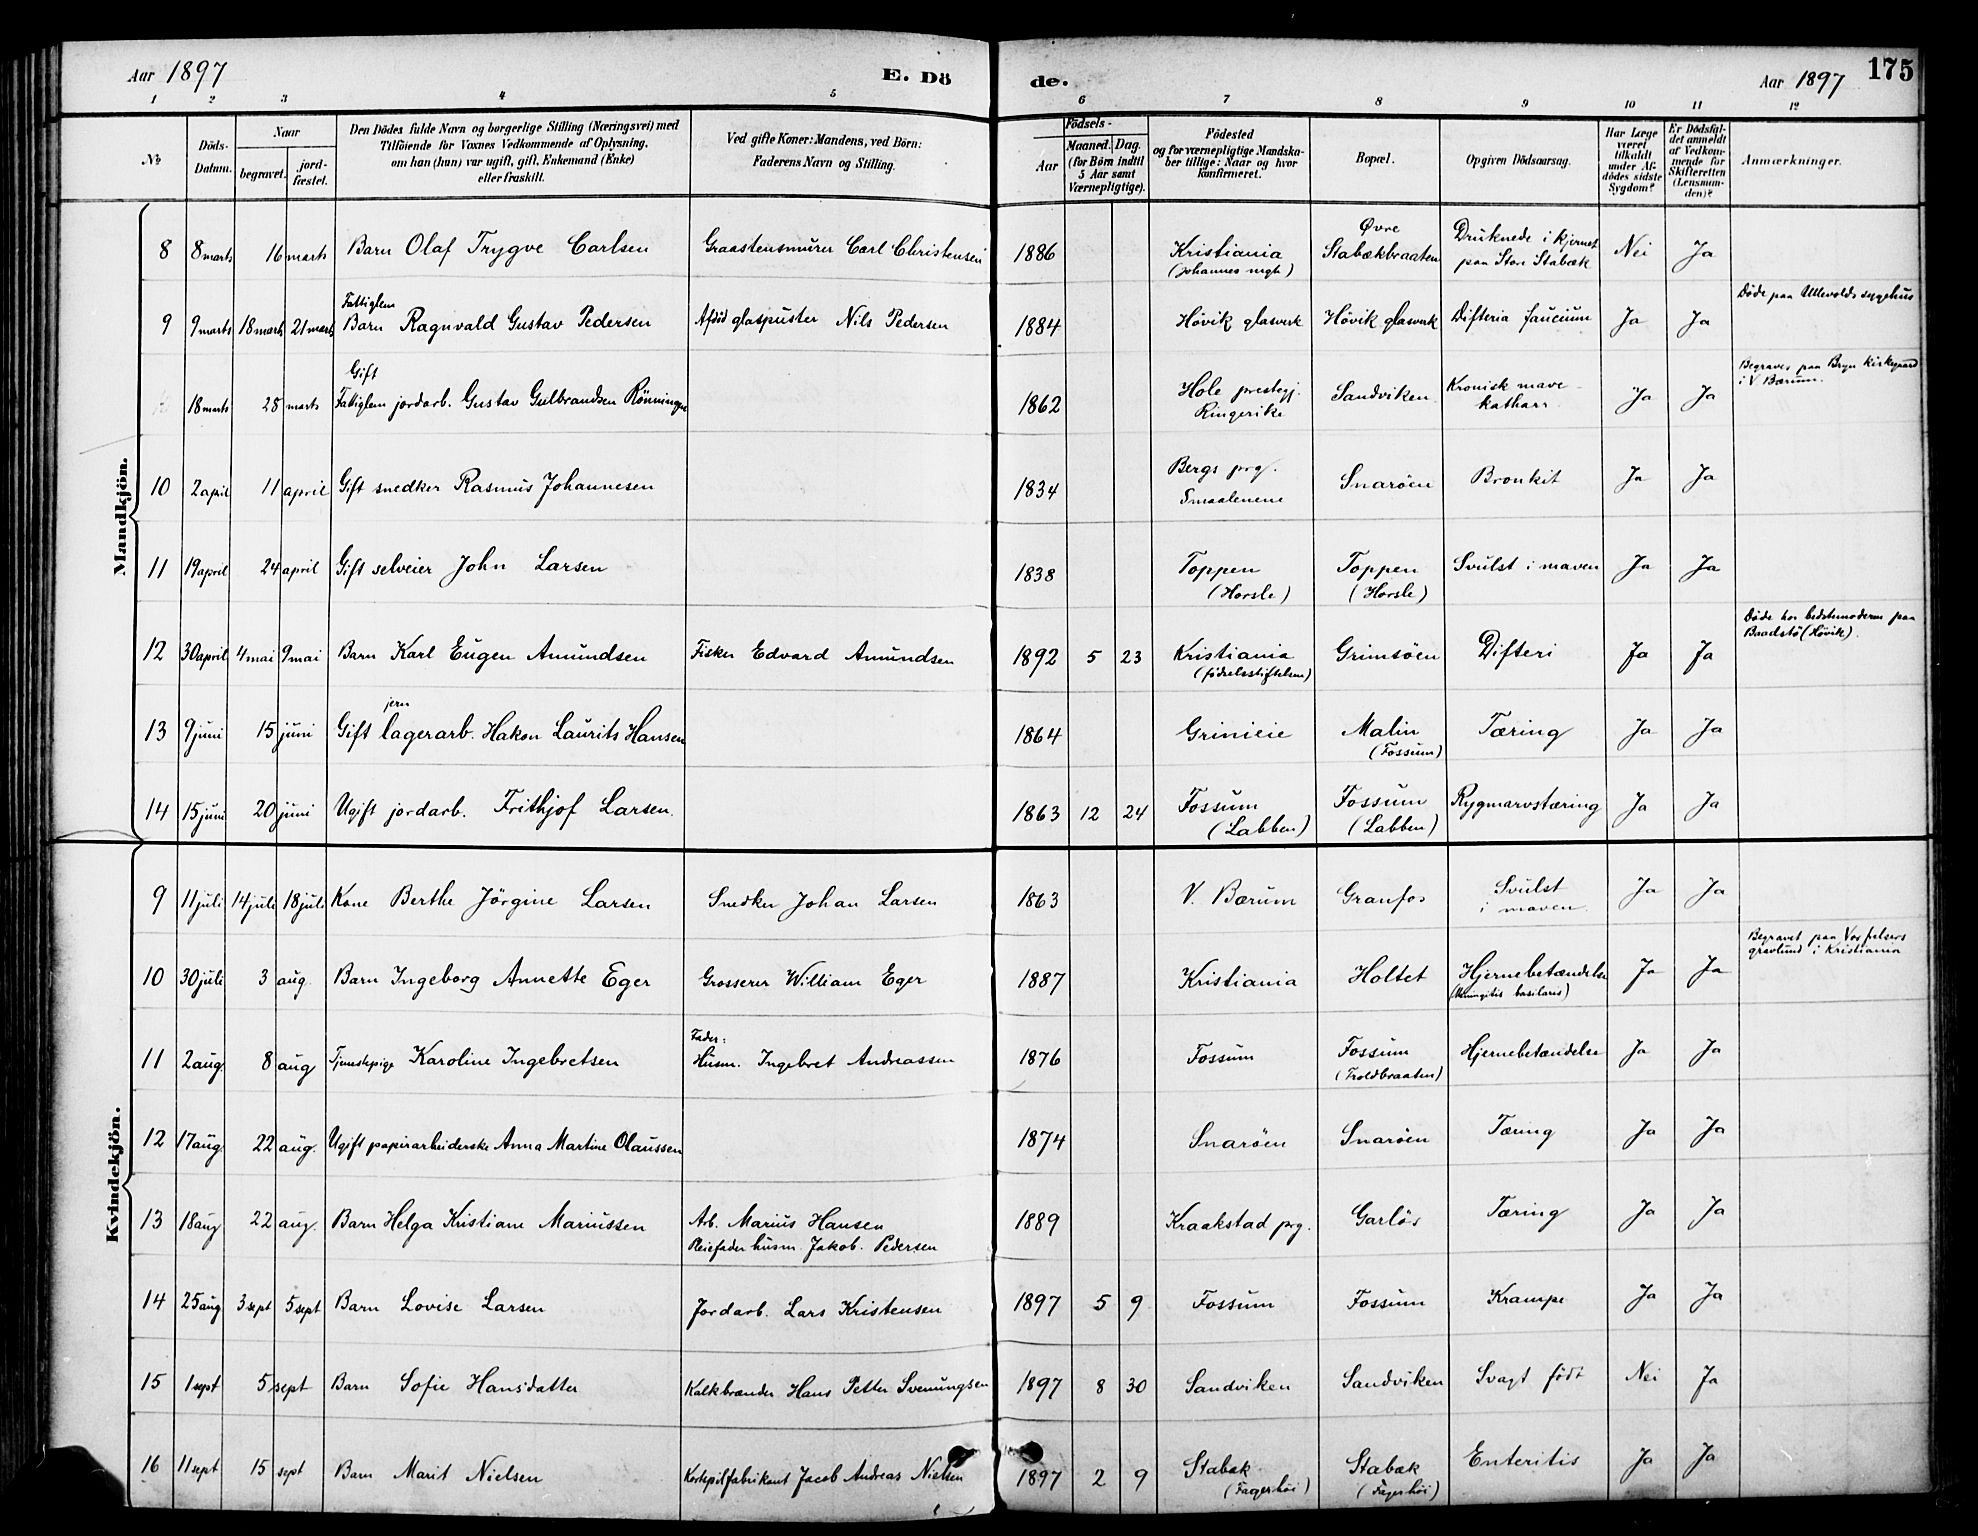 Aar 1897 E. Dö de. Aar 1897 175
1 2 3 4 5 6 7 8 9 10 11 12
No
Döds-Datum.
Naar
begravet.
jord-fæstet.
Den Dödes fulde Navn og borgerlige Stilling (Næringsvei) med
Tilföiende for Voxnes Vedkommende af Oplysning,
om han (hun) var ugift, gift, Enkemand (Enke)
eller fraskilt.
Ved gifte Koner: Mandens, ved Börn:
Faderens Navn og Stilling.
Födsels-
Aar
Maaned. Dag.
(for Börn indtil
5 Aar samt
Værnepligtige).
Födested
og for værnepligtige Mandska-
ber tillige: Naar og hvor
konfirmeret.
Bopæl.
Opgiven Dödsaarsag.
Har Læge
været
tilkaldt
under Af-
dödes sidste
Sygdom?
Er Dödsfal-
det anmeldt
af Vedkom-
mende for
Skifteretten
(Lensman-
den)?
Anmærkninger.
Mandkjön.
8 8 marts 16 marts Barn Olaf Trygve Carlsen Graastensmurer Carl Christensen 1886 Kristiania (Johannes mgh) Øvre Stabækbraaten Druknede i kjernet paa Store Stabæk Nei Ja
9 9 marts 18 marts 21 marts Fattiglem Barn Ragnvald Gustav Pedersen Afdöd glaspuster Nils Pedersen 1884 Hövik glasverk Hövik glasverk Difteria faucium Ja Ja Døde paa Ullevolds sygehus
18 marts 28 marts Gift Fattiglem jordarb. Gustav Gulbrandsen Rönningen 1862 Hole prestegj. Ringerike Sandviken Kronisk mave-katharr Ja Ja Begraves paa Bryn kirkegaard i V Bærum.
10 2 april 11 april Gift snedker Rasmus Johannesen 1834 Bergs prg. Smaalenene Snarøen Bronkit Ja Ja
11 19 april 24 april Gift selveier John Larsen 1838 Toppen (Horsle) Toppen (Horsle) Svulst i maven Ja Ja
12 30 april 4 mai 9 mai Barn Karl Eugen Amundsen Fisker Edvard Amundsen 1892 5 23 Kristiania (fødselsstiftelsen) Grimsöen Difteri Ja Ja Døde hos bedstemoderen paa Baadstö (Hövik).
13 9 juni 15 juni Gift jern lagerarb. Hakon Laurits Hansen 1864 Grinieie Malin (Fossum) Tæring Ja Ja
14 15 juni 20 juni Ugift jordarb. Frithjof Larsen. 1863 12 24 Fossum (Labben) Fossum (Labben) Rygmarvstæring Ja Ja
Kvindekjön.
9 11 juli 14 juli 18 juli Kone Berthe Jörgine Larsen Snedker Johan Larsen 1863 V. Bærum Granfos Svulst i maven Ja Ja
10 30 juli 3 aug. Barn Ingeborg Annette Eger Grosserer William Eger 1887 Kristiania Holtet Hjernebetændelse (Meningitis basilaris) Ja Ja Begravet paa Vor frelsers gravlund i Kristiania
11 2 aug 8 aug Tjenestepige Karoline Ingebretsen Fader: Husm. Ingebret Andreassen 1876 Fossum Fossum (Troldbraaten) Hjernebetændelse Ja Ja
12 17 aug. 22 aug. Ugift papirarbeiderske Anna Martine Olaussen 1874 Snarøen Snarøen Tæring Ja Ja
13 18 aug 22 aug. Barn Helga Kristiane Mariussen Arb. Marius Hansen Pleiefader husm. Jakob. Pedersen 1889 Kraakstad prg. Garløs Tæring Ja Ja
14 25 aug 3 sept 5 sept Barn Lovise Larsen Jordarb. Lars Kristensen 1897 5 9 Fossum Fossum Krampe Ja Ja
15 1 sept 5 sept Barn Sofie Hansdatter Kalkbrænder Hans Petter Svenungsen 1897 8 30 Sandviken Sandviken Svagt født Nei Ja
16 11 sept 15 sept Barn Marit Nielsen Korkspilfabrikant Jacob Andreas Nielsen 1897 2 9 Stabæk (Fagerhöi) Stabæk (Fagerhöi) Enteritis Ja Ja